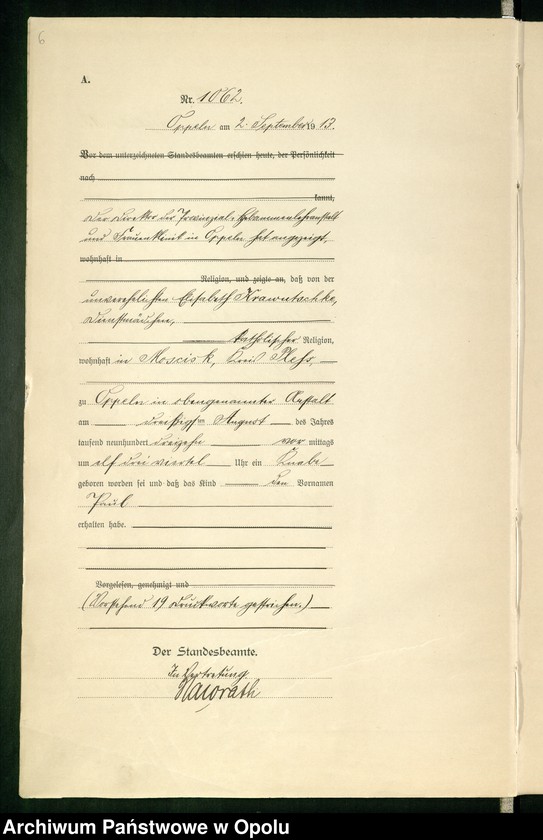 6
A.
Nr. 1062.
Oppeln am 2. September 1913.
Vor dem unterzeichneten Standesbeamten erschien heute, der Persönlichkeit
nach
kannt,
Der Direktor der Provinzial-Hebammenlehranstalt
und Frauenklinik in Oppeln hat angezeigt,
wohnhaft in
Religion, und zeigte an, daß von der
unverehelichten Elisabeth Krawutschke,
Dienstmädchen,
katholischer Religion,
wohnhaft in Moscisk, Kreis Pleß,
zu Oppeln in obengenannter Anstalt
am dreißigsten August des Jahres
tausend neunhundert dreizehn vor mittags
um elf drei viertel Uhr ein Knabe
geboren worden sei und daß das Kind den Vornamen
Paul
erhalten habe.
Vorgelesen, genehmigt und
(Vorstehend 19 Druckworte gestrichen.)
Der Standesbeamte.
In Vertretung
Archiwum Państwowe w Opolu